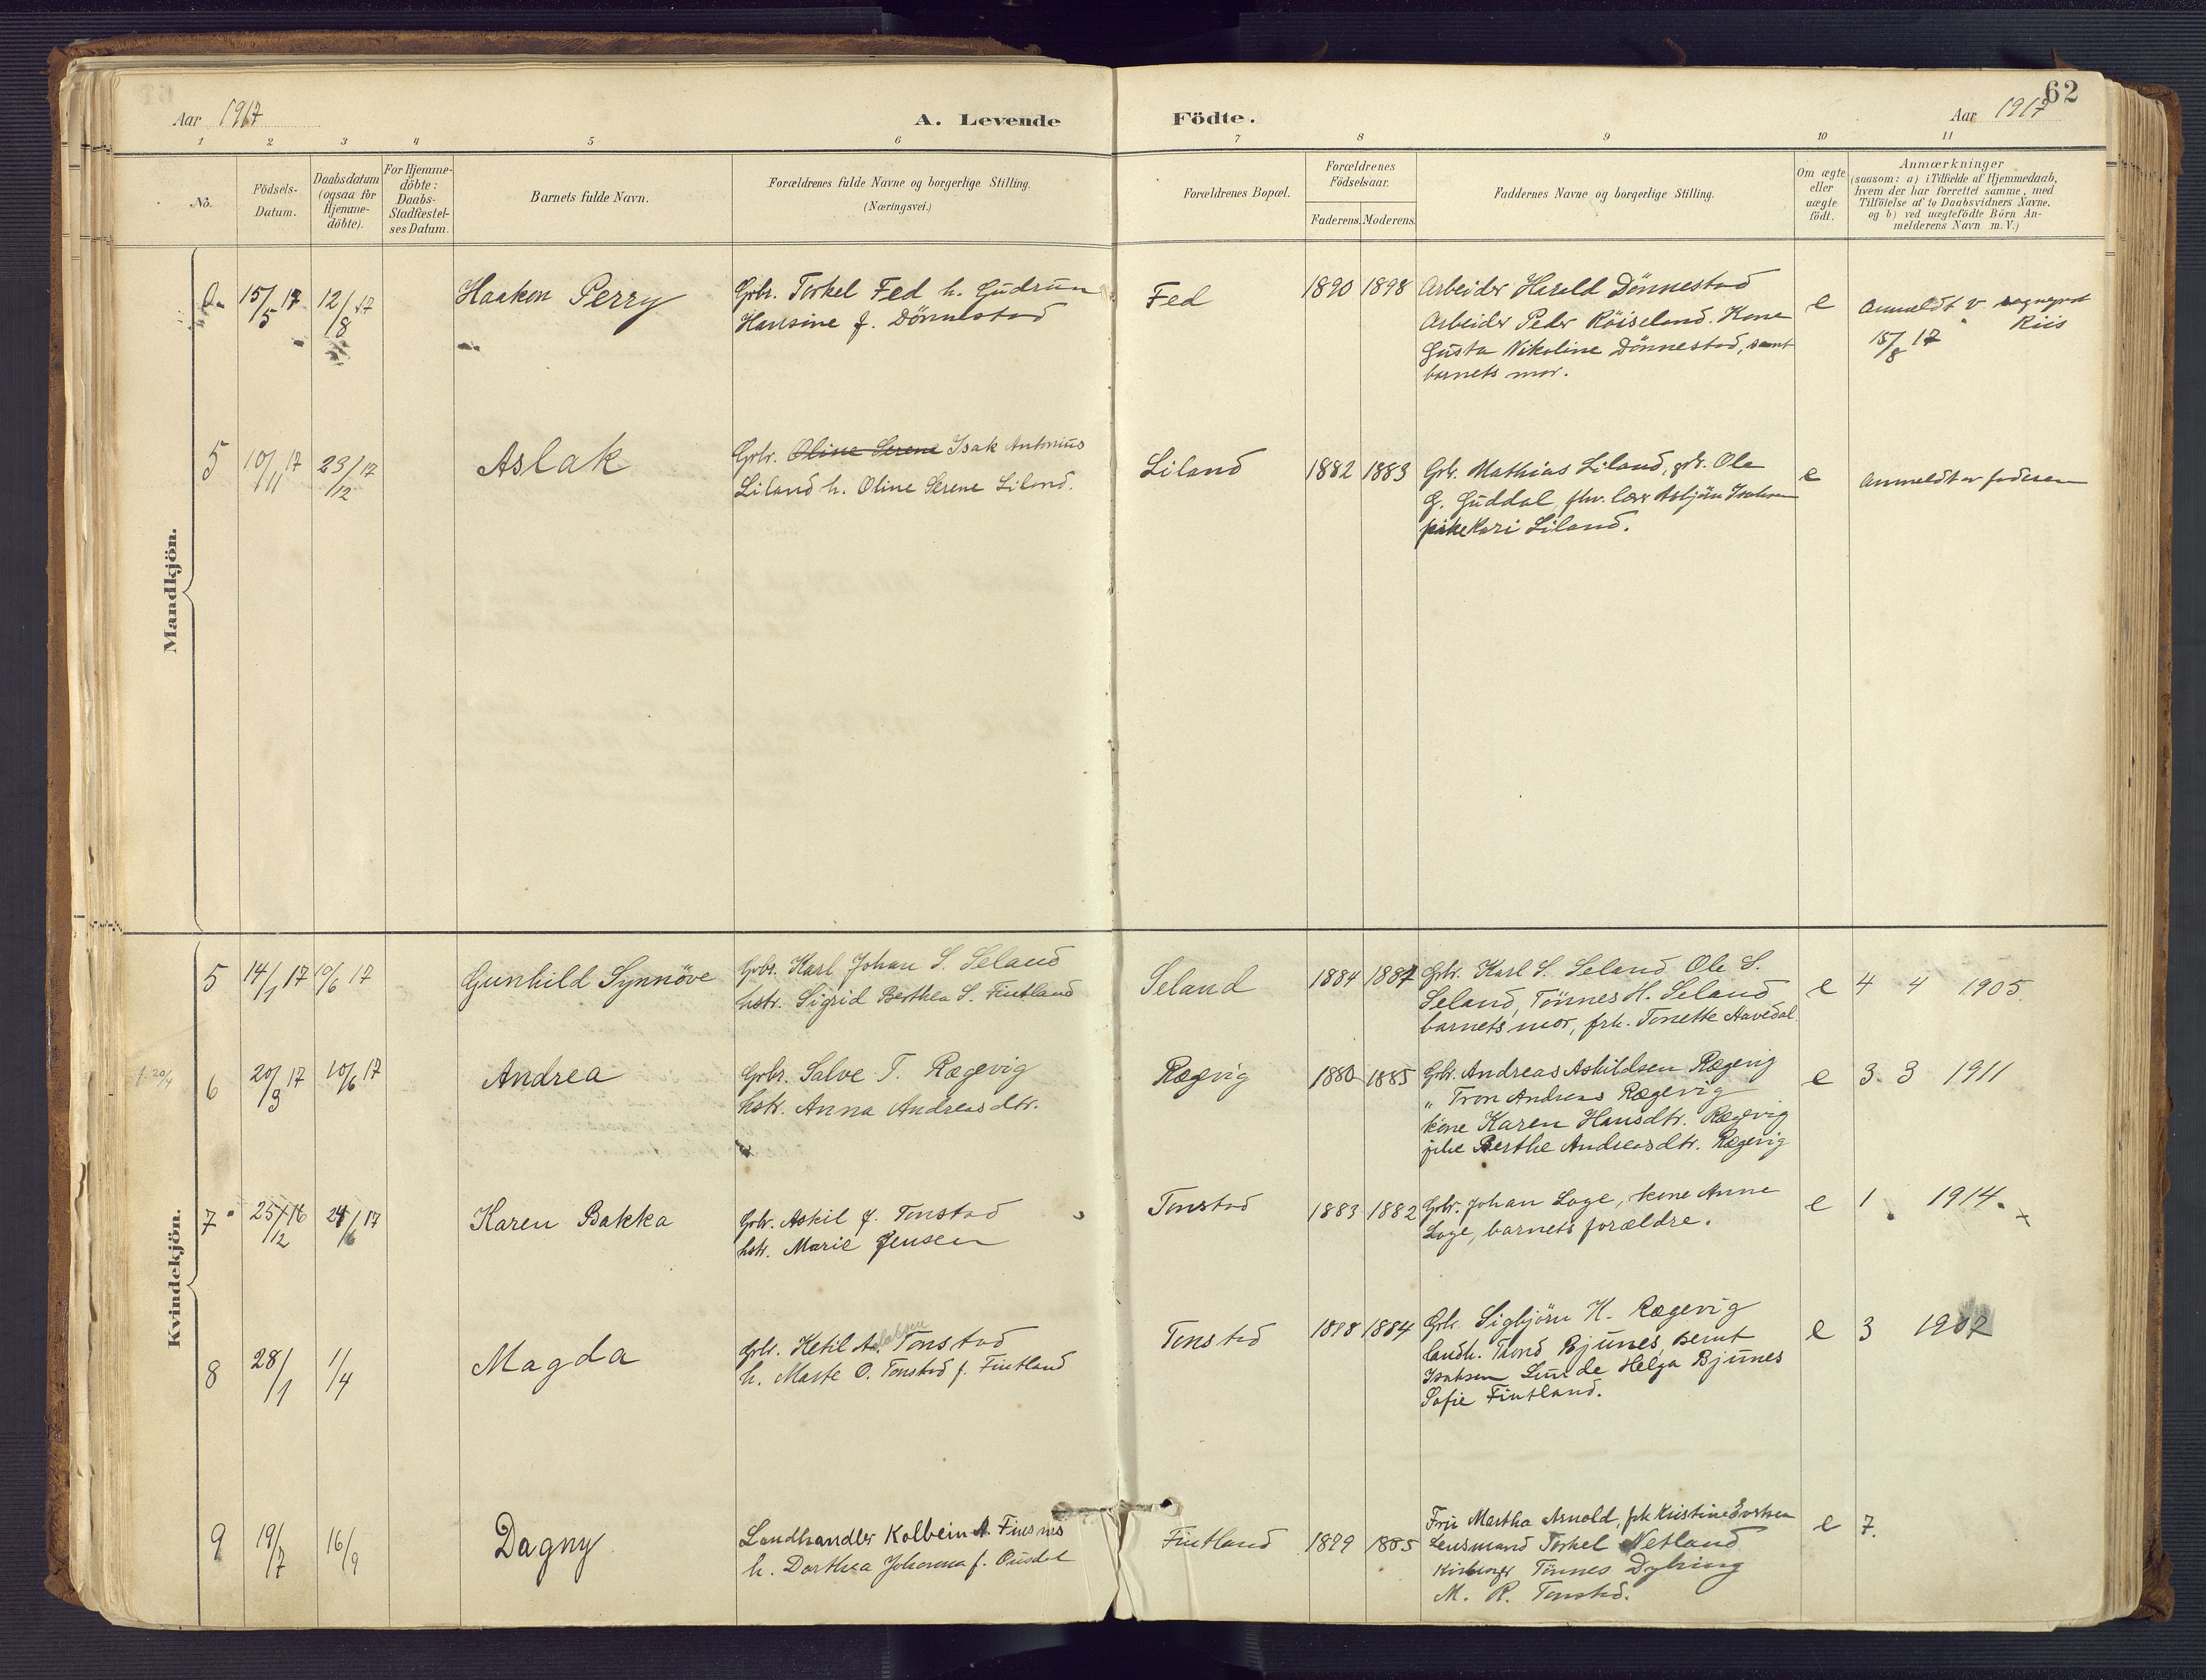 62
Aar 1917
A. Levende Födte.
Aar 1917
1 2 3 4 5 6 7 8 9 10 11
No.
Födsels-Datum.
Daabsdatum (ogsaa for Hjemme-döbte).
For Hjemme-döbte: Daabs-Stadfæstel-ses Datum.
Barnets fulde Navn.
Forældrenes fulde Navne og borgerlige Stilling.
(Næringsvei.)
Forældrenes Bopæl.
Forældrenes Födselsaar.
Faderens. Moderens.
Faddernes Navne og borgerlige Stilling.
Om ægte eller uægte födt.
Anmærkninger
(saasom: a) i Tilfælde af Hjemmedaab,
hvem der har forrettet samme, med
Tilföielse af to Daabsvidners Navne.
og b) ved uægtefödte Börn An-
melderens Navn m. V.)
Mandkjön.
15/5 17 12/8 17 Haakon Perry
Gbr. Torkel Fed h. Gudrun
Hansine f. Dönnestad
Fed 1890 1898
Arbeider Harald Dönnestad
Arbeider Peder Röiseland. Kone
Gusta Nikoline Dönnestad, samt
barnets mor.
e
Anmeldt v sogneprst
Riis
15/8 17
5 10/11 17 23/12 17 Aslak
Gbr. Oline Serene Isak Antonius
Liland h. Oline Serene Liland.
Liland 1882 1883
Gbr. Mathias Liland, gbr. Ole
G. Guddal, fhv. lærer Asbjörn Isaksen
pike Kari Liland.
e
Anmeldt av faderen
Kvindekjön.
5 14/1 17 10/6 17 Gunhild Synnöve
Gbr. Karl Johan S. Seland
hstr. Sigrid Berthea S. Fintland
Seland 1884 1887
Gbr. Karl S. Seland Ole S.
Seland, Tönnes H. Seland
barnets mor, frk. Tonette Aavedal.
e 4 4 1905.
f. 20/4
6 20/3 17 10/6 17 Andrea
Gbr. Salve T. Rægevig
hstr. Anna Andreasdtr.
Rægvig 1880 1885
Gbr. Andreas Askildsen Rægevig
" Tron Andreas Rægevig
kone Karen Hansdtr. Rægevig
pike Berthe Andreasdtr. Rægevig
e 3. 3 1911
7 25/12 16 24/6 17 Karen Bakka
Gbr. Askil J. Tonstad
hstr. Marie Jensen
Tonstad 1883 1882
Gbr. Johan Loge, kone Anne
Loge, barnets forældre.
e 1. 1914.
8 28/1 1/4 Magda
Gbr. Ketil A. Tonstad
h. Marte O. Tonstad f. Fintland
Tonstad 1884
Gbr. Sigbjörn K. Rægevig
landh. Trond Bjunes, Bernt
Isaksen Lunde Helga Bjunes
Sofie Fintland.
e 3
9 19/7 16/9 Dagny
Landhandler Kolbein A. Finsnes
h. Dorthea Johanna f. Ousdal
Fintland 1885
Fru Martha Arnold, frk Kristine
Lensmand Torkel Netland
Kirkesanger Tönnes Dybing
M. R. Tonstad.
e 7.